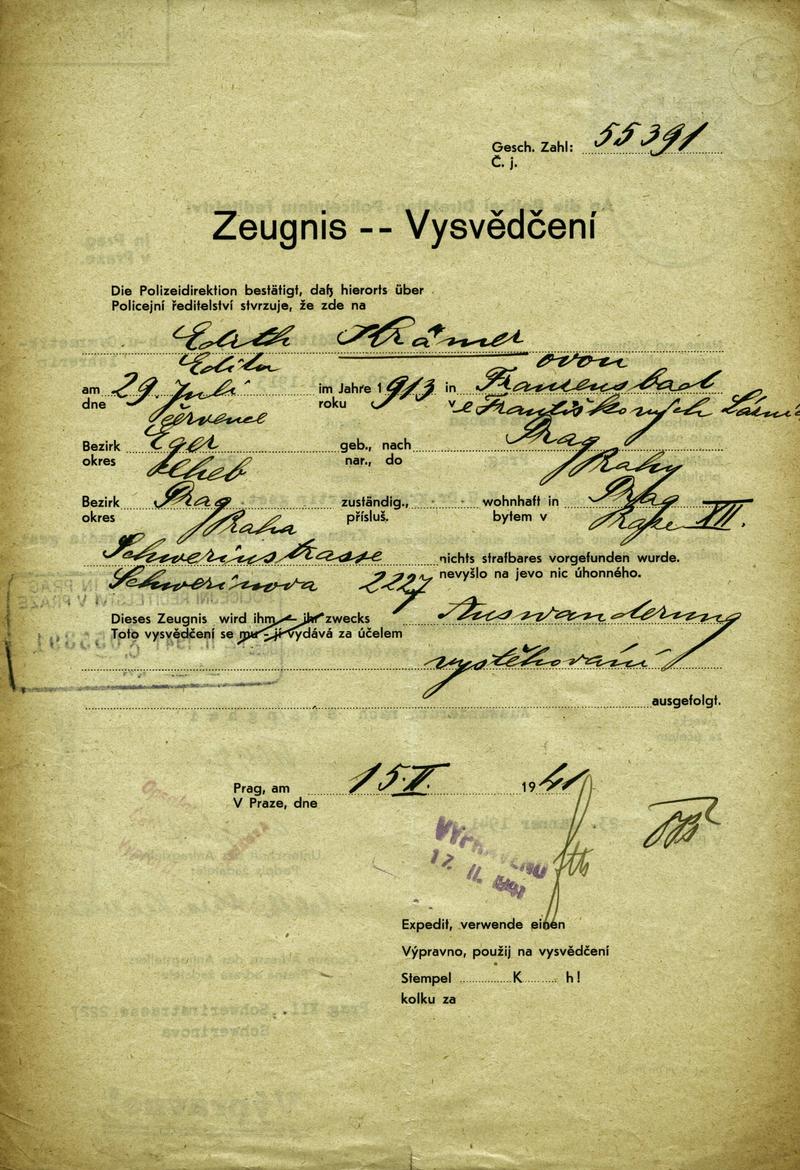 Gesch. Zahl: 55391
Č. j.
Zeugnis -- Vysvědčení
Die Polizeidirektion bestätigt, daß hierorts über
Policejní ředitelství stvrzuje, že zde na
Edith Krämer
Edita ovou
am 29. Juli im Jahre 1913 in Franzensbad
dne července roku v e Františkových Lázní
Bezirk Eger geb., nach Prag
okres Cheb nar., do Prahy
Bezirk Prag zuständig., wohnhaft in Prag
okres Praha přísluš. bytem v Praze XII.
Schwerinstrasse nichts strafbares vorgefunden wurde.
Schwerinova 2227 nevyšlo na jevo nic úhonného.
Dieses Zeugnis wird ihm - ihr zwecks Auswanderung
Toto vysvědčení se mu - jí vydává za účelem
vystěhování
ausgefolgt.
Prag, am 15.II. 1941
V Praze, dne
VYPRAVENO
17. II. 1941
Expedit, verwende einen
Výpravno, použij na vysvědčení
Stempel K h!
kolku za